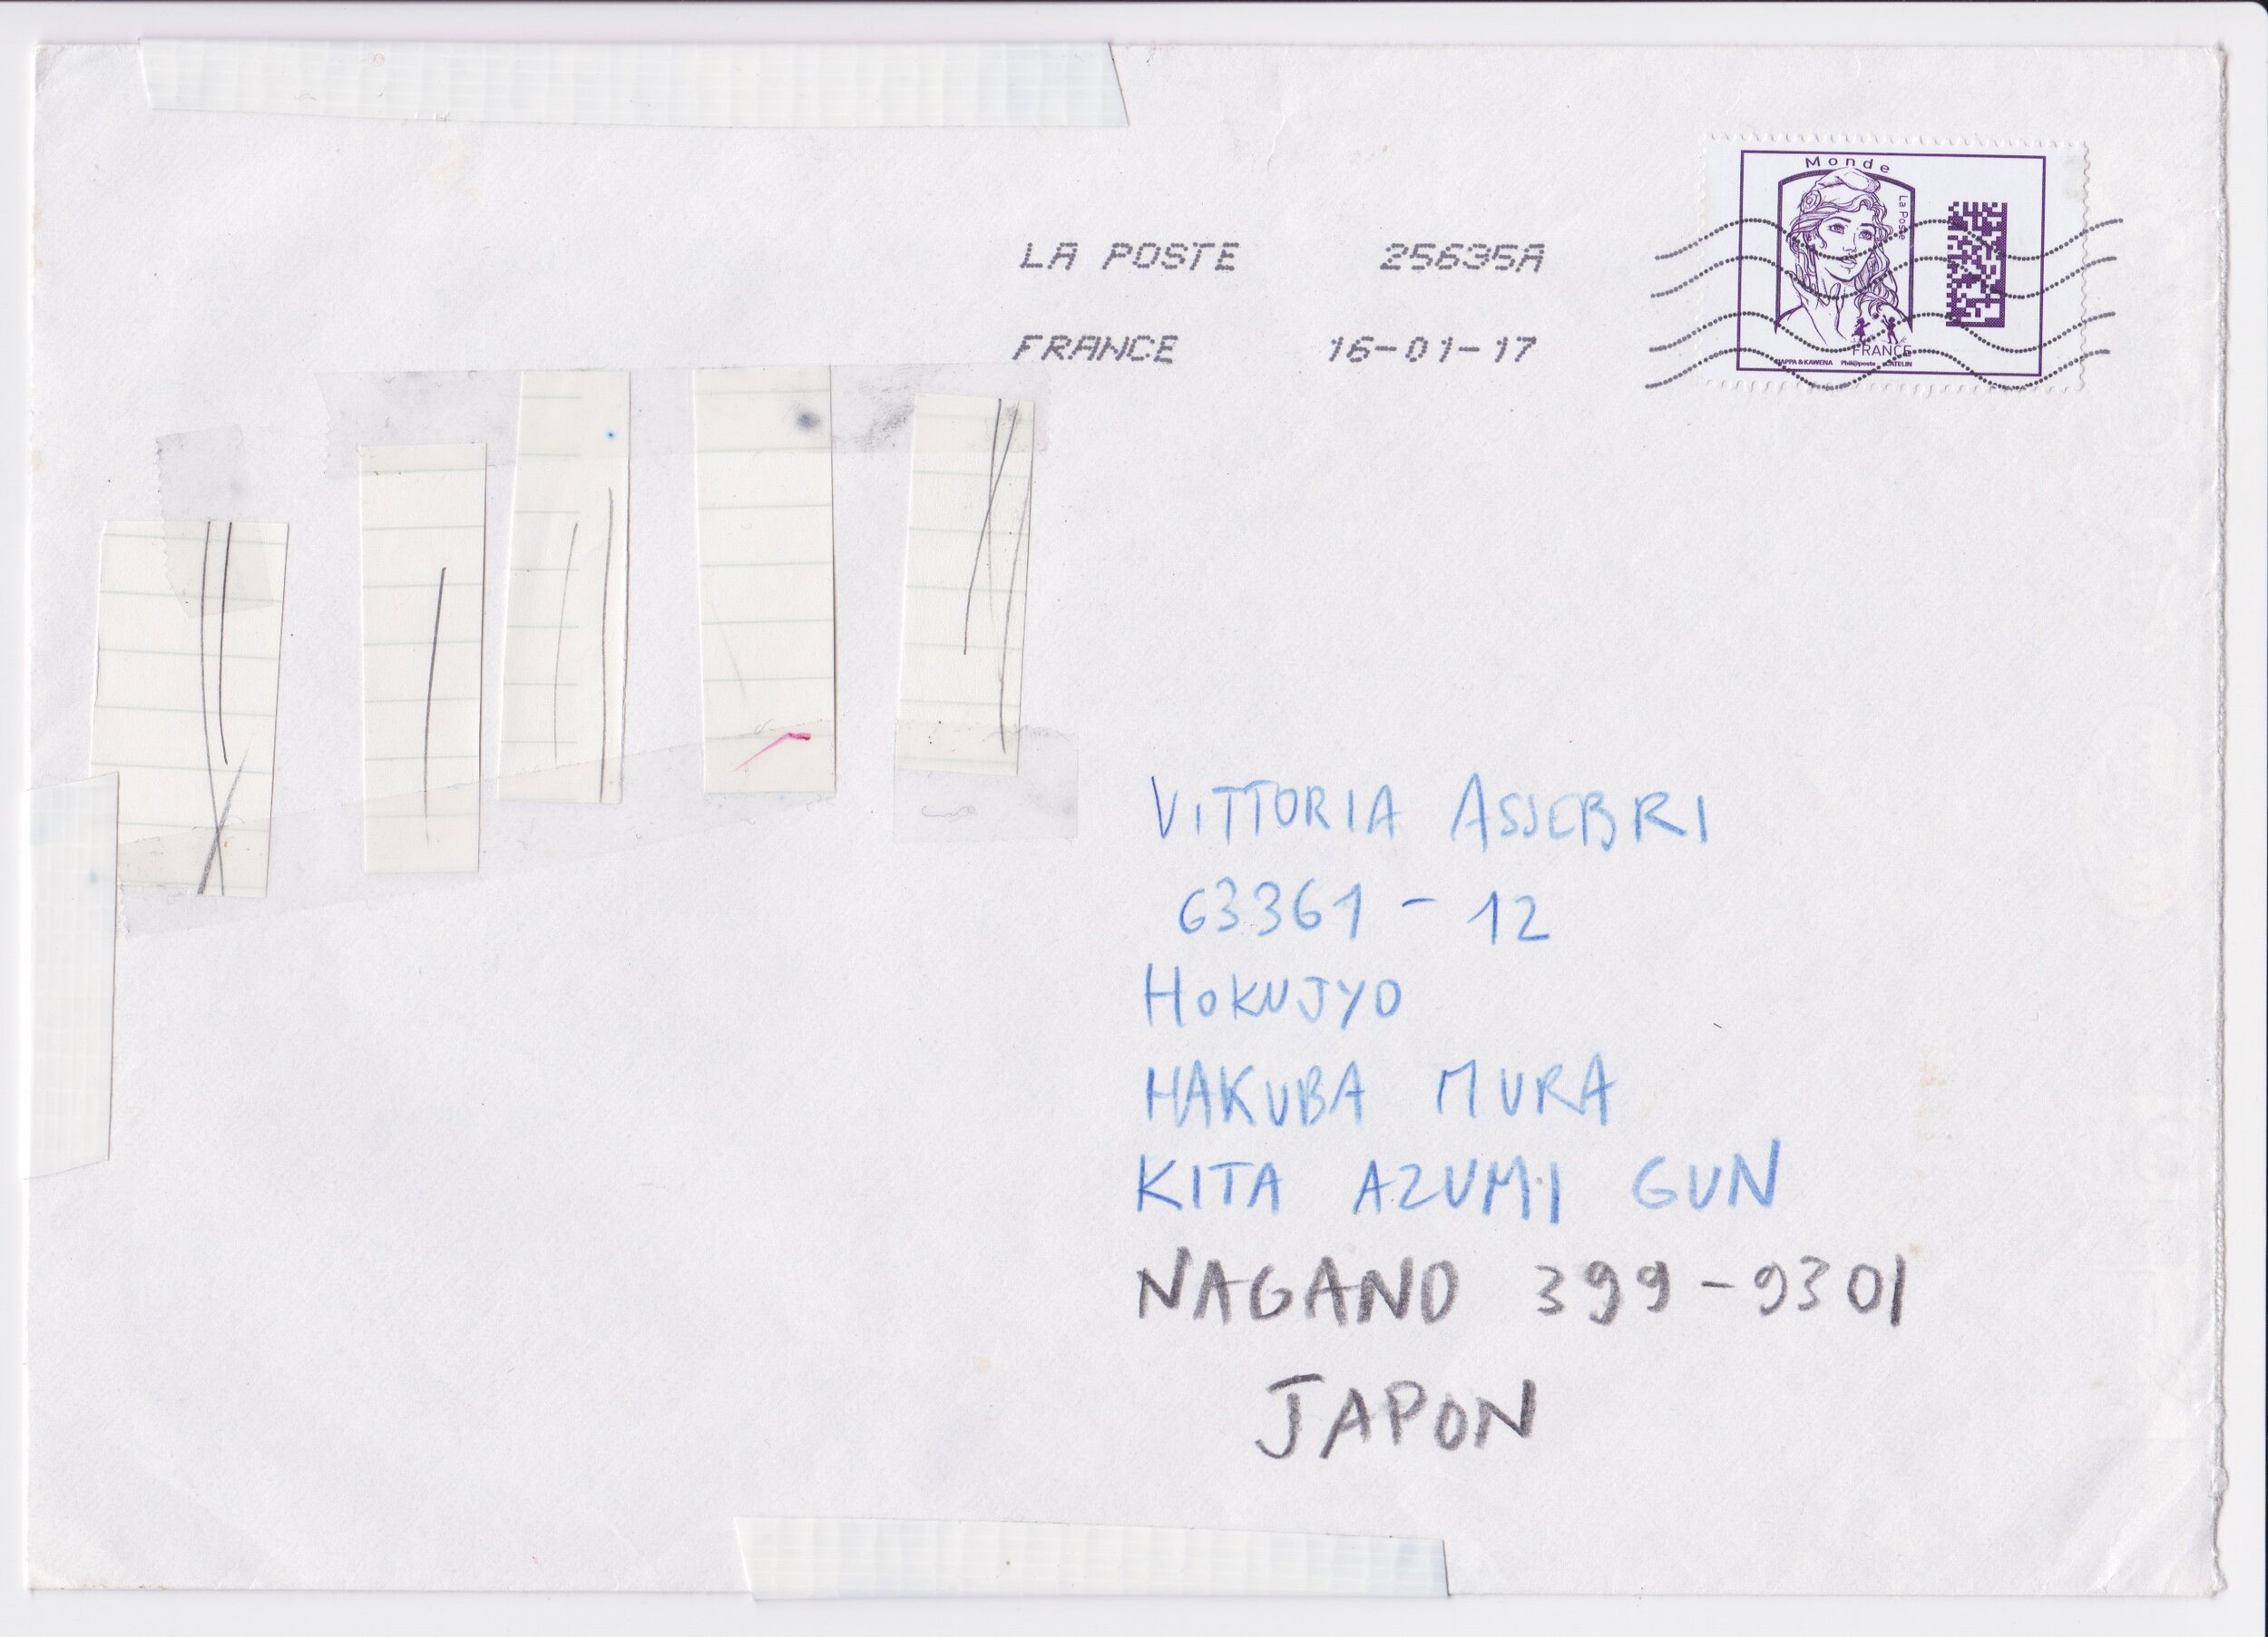 Monde
La Poste
LA POSTE 25635A
FRANCE 16-01-17
FRANCE
CIAPPA & KAWENA Phil@poste
VITTORIA ASSEBRI
63361 - 12
HOKUJYO
HAKUBA MURA
KITA AZUMI GUN
NAGANO 399-9301
JAPON